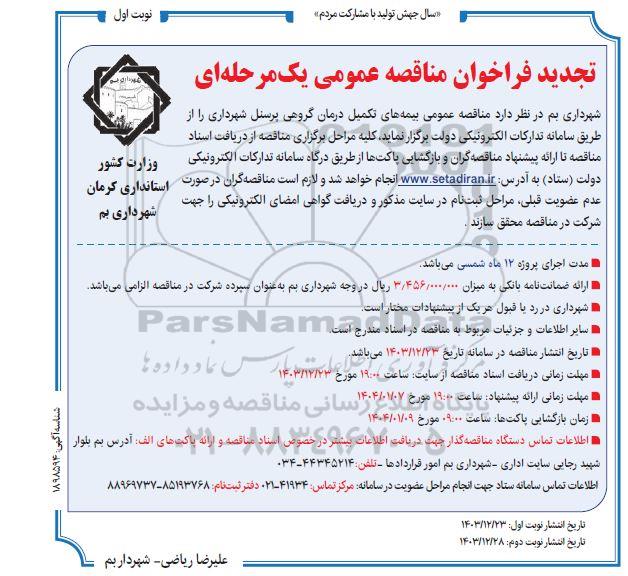 «سال جهش تولید با مشارکت مردم»
نوبت اول
تجدید فراخوان مناقصه عمومی یک‌مرحله‌ای
شهرداری بم
وزارت کشور
استانداری کرمان
شهرداری بم
شهرداری بم در نظر دارد مناقصه عمومی بیمه‌های تکمیل درمان گروهی پرسنل شهرداری را از
طریق سامانه تدارکات الکترونیکی دولت برگزار نماید، کلیه مراحل برگزاری مناقصه از دریافت اسناد
مناقصه تا ارائه پیشنهاد مناقصه‌گران و بازگشایی پاکت‌ها از طریق درگاه سامانه تدارکات الکترونیکی
دولت (ستاد) به آدرس: www.setadiran.ir انجام خواهد شد و لازم است مناقصه‌گران در صورت
عدم عضویت قبلی، مراحل ثبت‌نام در سایت مذکور و دریافت گواهی امضای الکترونیکی را جهت
شرکت در مناقصه محقق سازند.
مدت اجرای پروژه ۱۲ ماه شمسی می‌باشد.
ارائه ضمانت‌نامه بانکی به میزان ۳/۴۵۶/۰۰۰/۰۰۰ ریال در وجه شهرداری بم به‌عنوان سپرده شرکت در مناقصه الزامی می‌باشد.
شهرداری در رد یا قبول هر یک از پیشنهادات مختار است.
سایر اطلاعات و جزئیات مربوط به مناقصه در اسناد مندرج است.
تاریخ انتشار مناقصه در سامانه تاریخ ۱۴۰۳/۱۲/۲۳ می‌باشد.
مهلت زمانی دریافت اسناد مناقصه از سایت: ساعت ۱۹:۰۰ مورخ ۱۴۰۳/۱۲/۲۳
مهلت زمانی ارائه پیشنهاد: ساعت ۱۹:۰۰ مورخ ۱۴۰۴/۰۱/۰۷
زمان بازگشایی پاکت‌ها: ساعت ۰۹:۰۰ مورخ ۱۴۰۴/۰۱/۰۹
اطلاعات تماس دستگاه مناقصه‌گذار جهت دریافت اطلاعات بیشتر در خصوص اسناد مناقصه و ارائه پاکت‌های الف: آدرس بم بلوار
شهید رجایی سایت اداری -شهرداری بم امور قراردادها -تلفن: ۰۳۴-۴۴۳۴۵۲۱۴
اطلاعات تماس سامانه ستاد جهت انجام مراحل عضویت در سامانه: مرکز تماس: ۴۱۹۳۴-۰۲۱ دفتر ثبت‌نام: ۸۵۱۹۳۷۶۸-۸۸۹۶۹۷۳۷
تاریخ انتشار نوبت اول: ۱۴۰۳/۱۲/۲۳
تاریخ انتشار نوبت دوم: ۱۴۰۳/۱۲/۲۸
علیرضا ریاضی- شهردار بم
شناسه آگهی: ۱۸۹۸۵۹۴
ParsNamadData
مرکز فرآوری اطلاعات پارس نماد داده‌ها
پایگاه اطلاع رسانی مناقصه و مزایده
۰۲۱-۸۸۳۴۹۶۷۰-۵